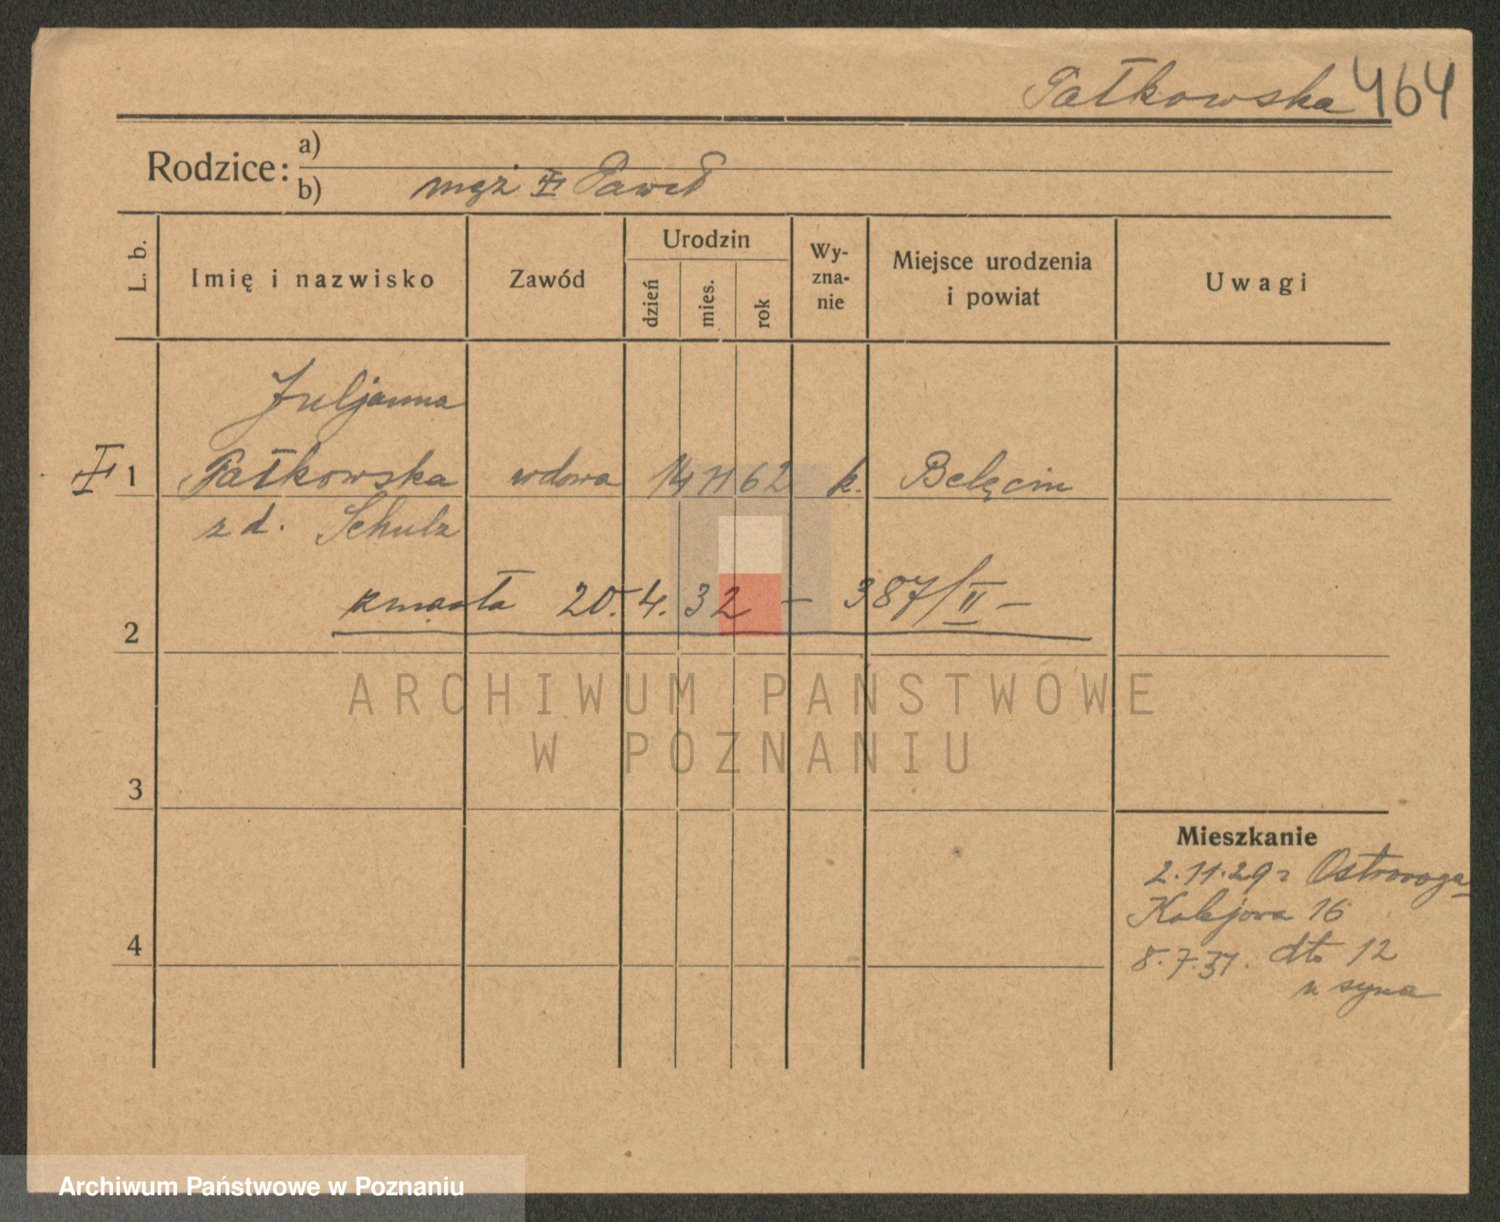 Pałkowska 464
Rodzice: a)
b) mąż Paweł
L. b.
Imię i nazwisko
Zawód
Urodzin
dzień
mies.
rok
Wy-
zna-
nie
Miejsce urodzenia
i powiat
Uwagi
Juljanna
1 Pałkowska wdowa 14 11 62 k. Belęcin
z d. Schulz
zmarła 20.4.32 – 387/II –
2
ARCHIWUM PAŃSTWOWE
W POZNANIU
3
Mieszkanie
2.11.29 z Ostroroga
Kolejowa 16
4
8.7.31. dto 12
u syna
Archiwum Państwowe w Poznaniu